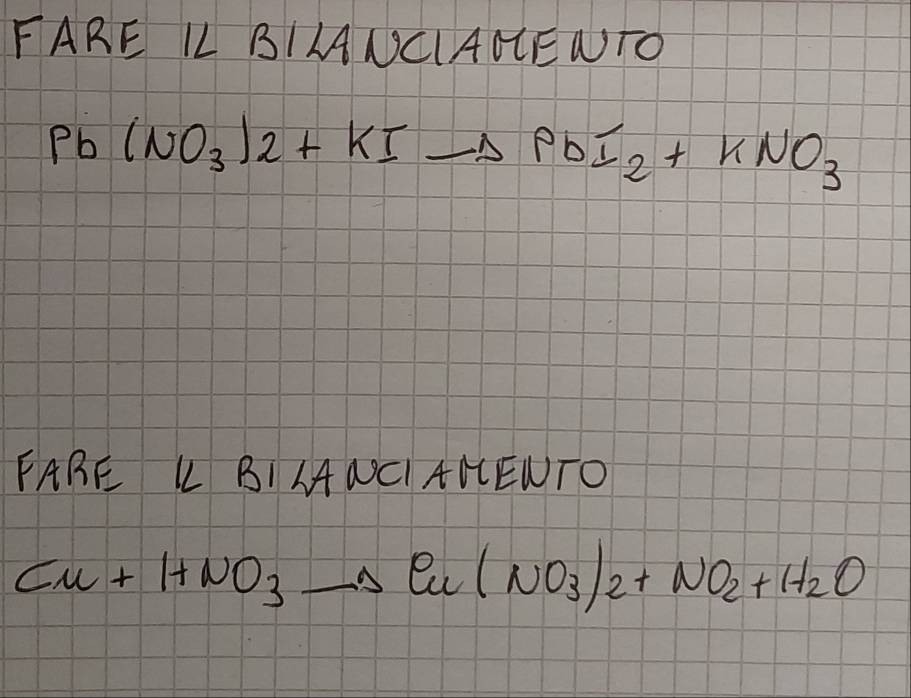 FARE IL BILANCIAMENTO
Pb(NO₃)2 + KI → PbI₂ + KNO₃
FARE IL BILANCIAMENTO
Cu + HNO₃ → Cu(NO₃)₂ + NO₂ + H₂O